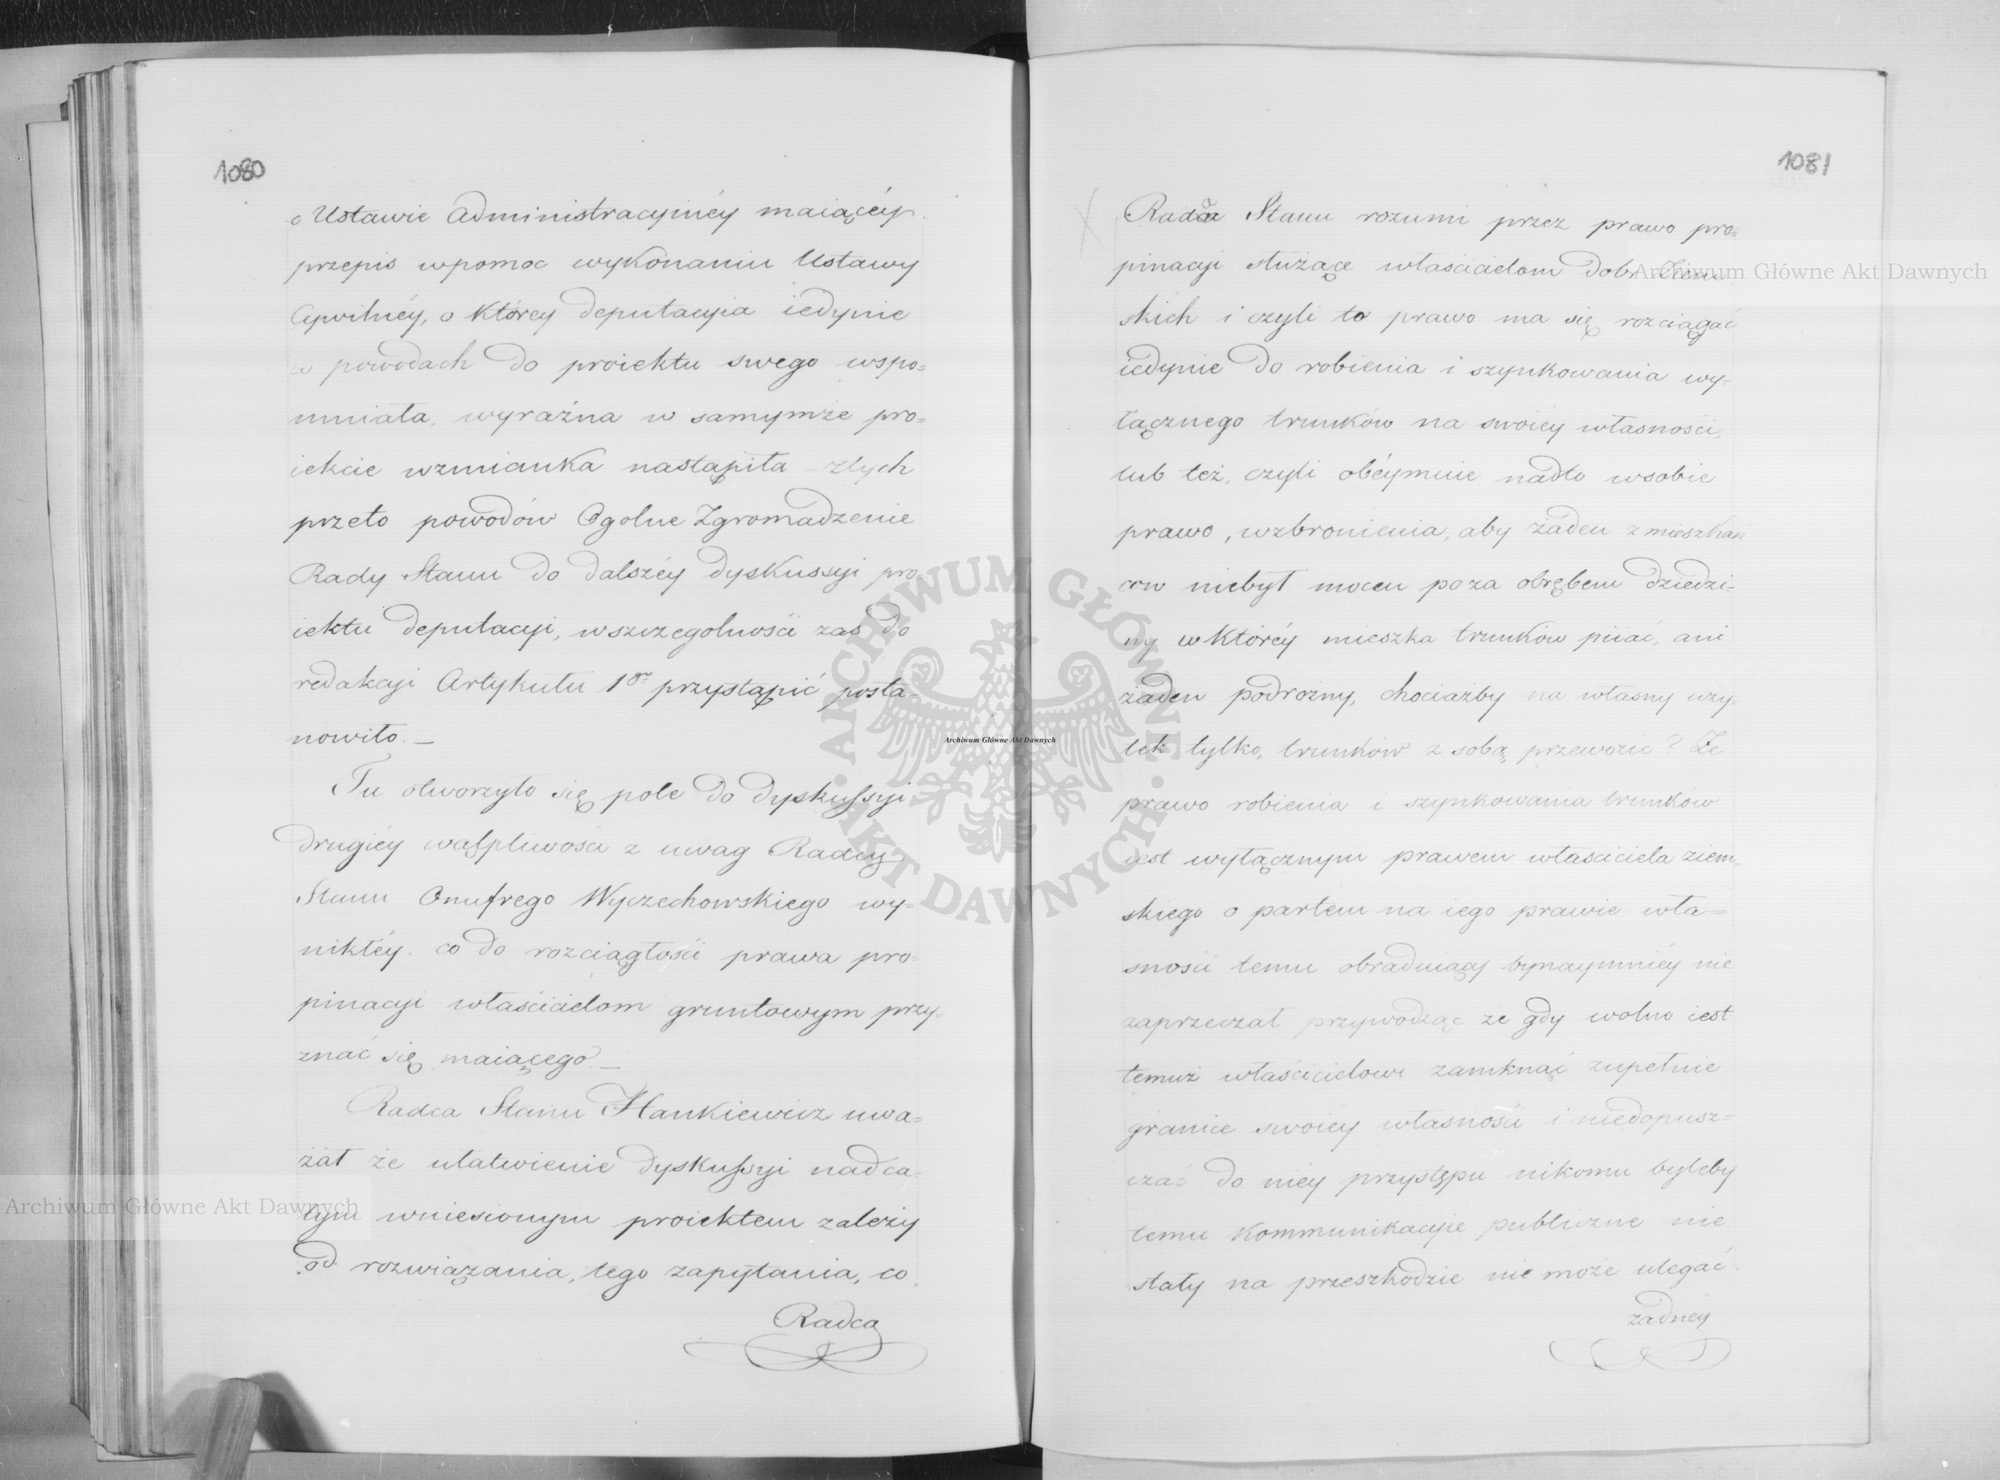 1080
o Ustawie Administracyinéy maiącéy
przepis wpomoc wykonaniu Ustawy
Cywilnéy, o którey deputacyia iedynie
w powodach do proiektu swego wspo=
mniała, wyraźna w samymże pro=
iekcie wzmianka nastąpiła – ztych
przeto powodów Ogolne Zgromadzenie
Rady Stanu do dalszéy dyskussyi pro=
iektu deputacyi, wszczegolności zaś do
redakcyi Artykułu 1go przystąpić posta-
nowiło. —
Tu otworzyło się pole do dyskussyi
drugiéy wątpliwości z uwag Radcy
Stanu Onufrego Wyczechowskiego wy=
nikłéy. co do rozciągłości prawa pro=
pinacyi właścicielom gruntowym przy=
znać się maiącego. —
Radca Stanu Hankiewicz uwa=
żał że ułatwienie dyskussyi nadca=
łym wniesionym proiektem zależy
od rozwiązania, tego zapytania, co
Radca
1081
Radca Stanu rozumi przez prawo pro=
pinacyi służące właścicielom dobr
skich i czyli to prawo ma się rozciągać
iedynie do robienia i szynkowania wy=
łącznego trunków na swoiéy własności,
lub też, czyli obéymuie nadto wsobie
prawo, wzbronienia, aby żaden zmieszkań
ców niebył mocen poza obrębem dziedzi=
ny wktóréy mieszka trunków piiać, ani
żaden podrożny, chociażby na własny uży
tek tylko, trunków z sobą przewozić? Że
prawo robienia i szynkowania trunków
iest wyłącznym prawem właściciela ziem=
skiego opartem na iego prawie wła=
sności temu obraduiący bynaymniéy nie
zaprzeczał przywodząc że gdy wolno iest
temuż właścicielowi zamknąć zupełnie
granice swoiéy własności i niedopusz=
czać do niéy przystępu nikomu byleby
temu kommunikacyie publiczne nie
stały na przeszkodzie nie może ulegać
żadnéy
Archiwum Główne Akt Dawnych
Archiwum Główne Akt Dawnych
Archiwum Główne Akt Dawnych
ARCHIWUM GŁÓWNE · AKT DAWNYCH ·